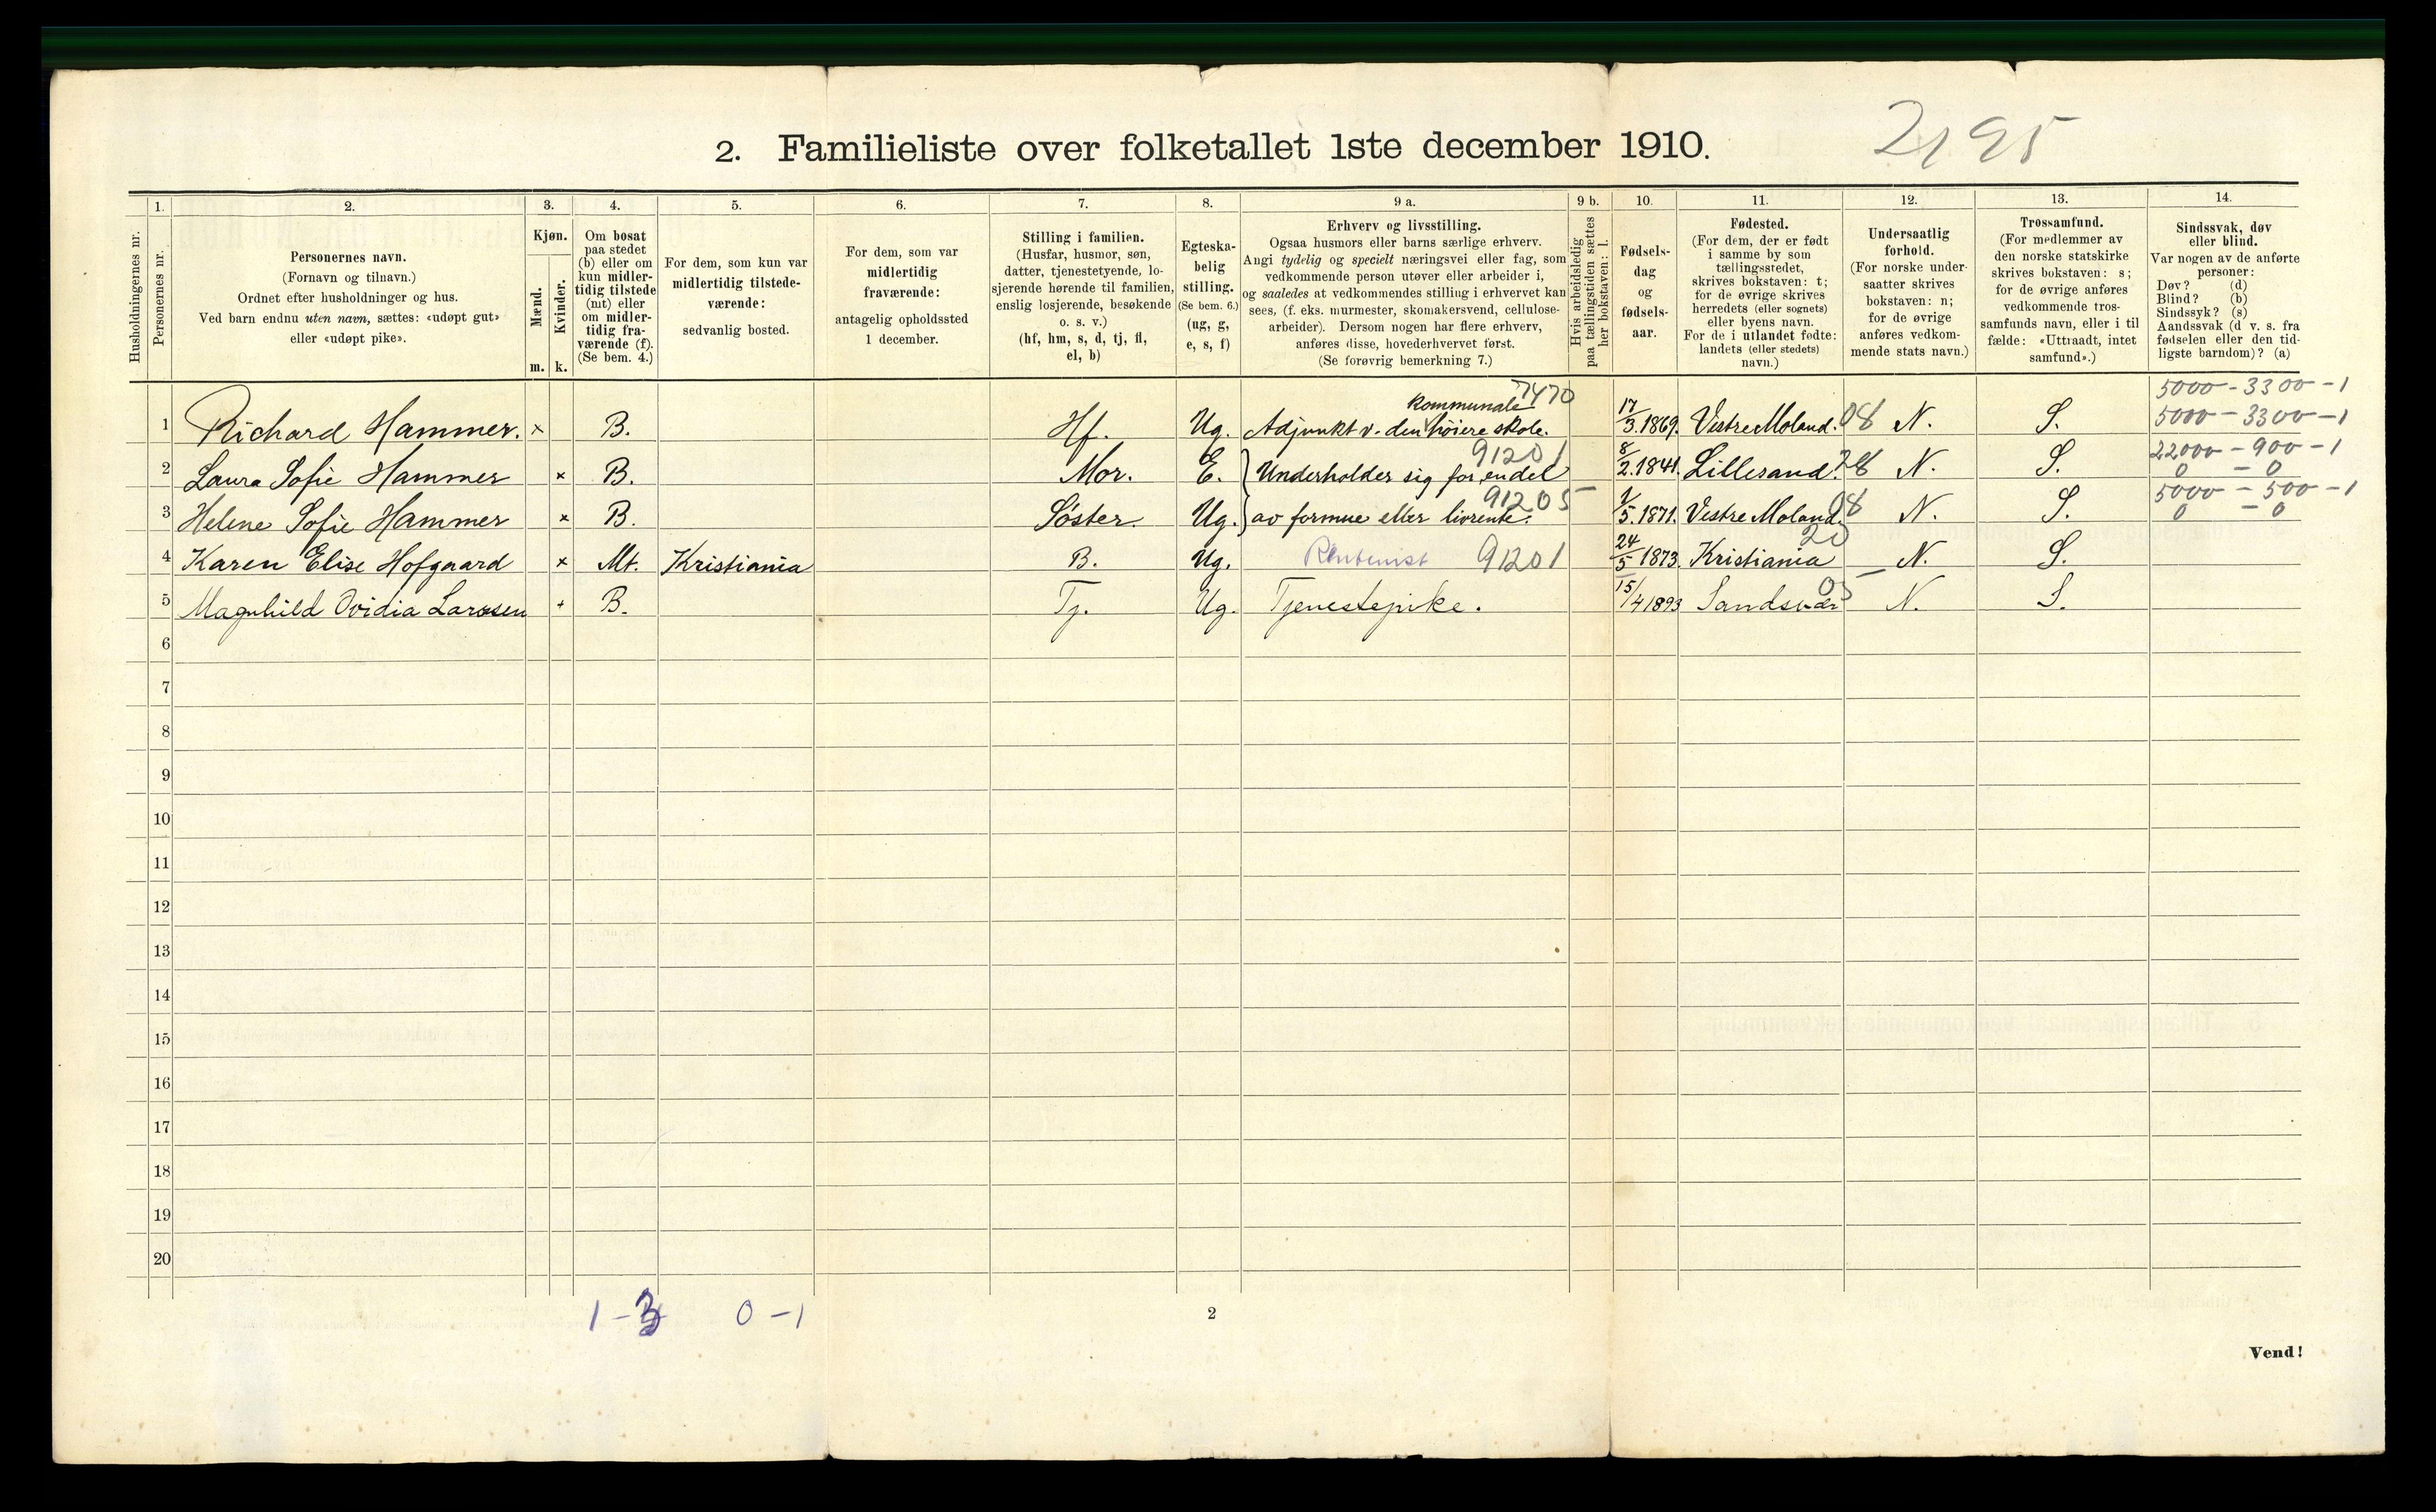 2195
2. Familieliste over folketallet 1ste december 1910.
Husholdningernes nr.
1.
Personernes nr.
2.
Personernes navn.
(Fornavn og tilnavn.)
Ordnet efter husholdninger og hus.
Ved barn endnu uten navn, sættes: «udøpt gut»
eller «udøpt pike».
3.
Kjøn.
Mænd.
Kvinder.
m.
k.
4.
Om bosat
paa stedet
(b) eller om
kun midler-
tidig tilstede
(mt) eller
om midler-
tidig fra-
værende (f).
(Se bem. 4.)
5.
For dem, som kun var
midlertidig tilstede-
værende:
sedvanlig bosted.
6.
For dem, som var
midlertidig
fraværende:
antagelig opholdssted
1 december.
7.
Stilling i familien.
(Husfar, husmor, søn,
datter, tjenestetyende, lo-
sjerende hørende til familien,
enslig losjerende, besøkende
o. s. v.)
(hf, hm, s, d, tj, fl,
el, b)
8.
Egteska-
belig
stilling.
(Se bem. 6.)
(ug, g,
e, s, f)
9 a.
Erhverv og livsstilling.
Ogsaa husmors eller barns særlige erhverv.
Angi tydelig og specielt næringsvei eller fag, som
vedkommende person utøver eller arbeider i,
og saaledes at vedkommendes stilling i erhvervet kan
sees, (f. eks. murmester, skomakersvend, cellulose-
arbeider). Dersom nogen har flere erhverv,
anføres disse, hovederhvervet først.
(Se forøvrig bemerkning 7.)
9 b.
Hvis arbeidsledig
paa tællingstiden sættes
her bokstaven: l.
10.
Fødsels-
dag
og
fødsels-
aar.
11.
Fødested.
(For dem, der er født
i samme by som
tællingsstedet,
skrives bokstaven: t;
for de øvrige skrives
herredets (eller sognets)
eller byens navn.
For de i utlandet fødte:
landets (eller stedets)
navn.)
12.
Undersaatlig
forhold.
(For norske under-
saatter skrives
bokstaven: n;
for de øvrige
anføres vedkom-
mende stats navn.)
13.
Trossamfund.
(For medlemmer av
den norske statskirke
skrives bokstaven: s;
for de øvrige anføres
vedkommende tros-
samfunds navn, eller i til
fælde: «Uttraadt, intet
samfund».)
14.
Sindssvak, døv
eller blind.
Var nogen av de anførte
personer:
Døv? (d)
Blind? (b)
Sindssyk? (s)
Aandssvak (d v. s. fra
fødselen eller den tid-
ligste barndom)? (a)
5000 - 3300 - 1
kommunale 7470
1 Richard Hammer. x B. Hf. Ug. Adjunkt v. den høiere skole. 17/3.1869. Vestre Moland. 08 N. S. 5000 - 3300 - 1
91201 22000 - 900 - 1
2 Laura Sofie Hammer x B. Mor. E. Underholder sig for endel 8/2.1841. Lillesand. 28 N. S. 0 - 0
91205 5000 - 500 - 1
3 Helene Sofie Hammer x B. Søster Ug. av formue eller livrente. 1/5.1871. Vestre Moland. 08 N. S. 0 - 0
4 Karen Elise Hofgaard x Mt. Kristiania B. Ug. Rentenist 91201 24/5 1873. Kristiania 20 N. S.
5 Magnhild Ovidia Larssen + B. Tj. Ug. Tjenestepike. 15/4 1893 Sandsvær 05 N. S.
6
7
8
9
10
11
12
13
14
15
16
17
18
19
20
1 - 3 0 - 1
2
Vend!